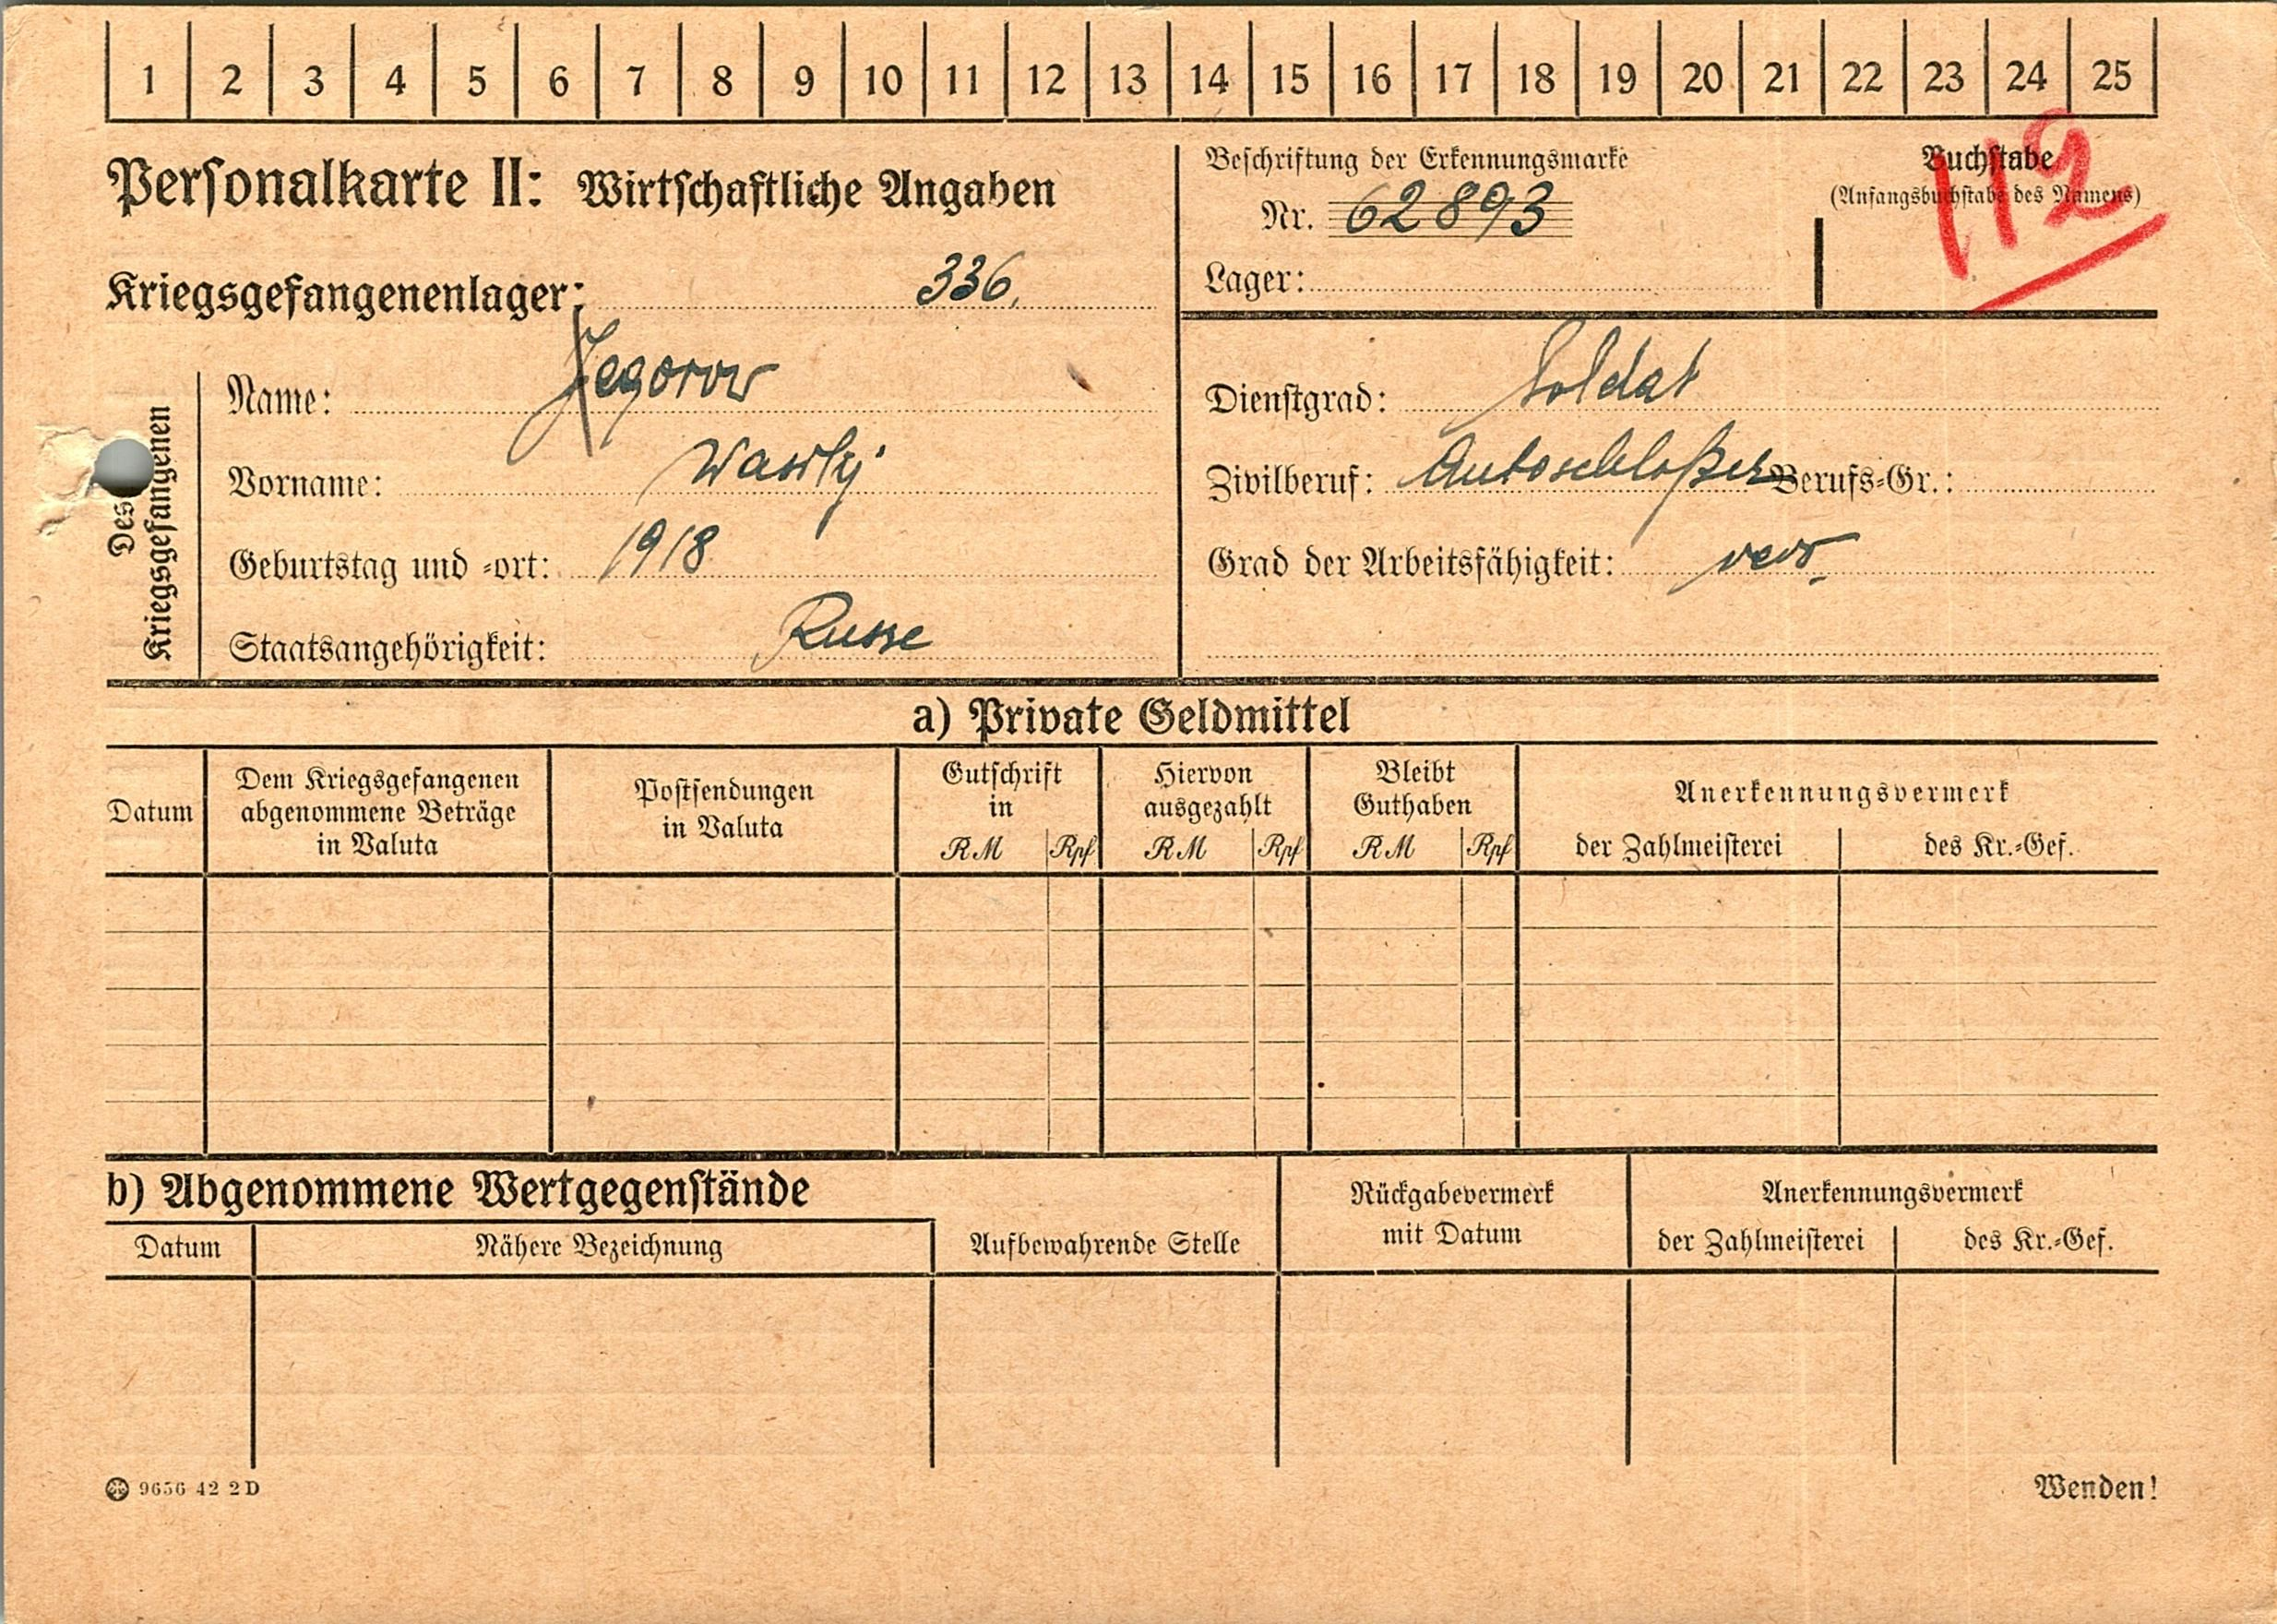 1 2 3 4 5 6 7 8 9 10 11 12 13 14 15 16 17 18 19 20 21 22 23 24 25
Personalkarte II: Wirtschaftliche Angaben
Beschriftung der Erkennungsmarke
Nr. 62893
Lager:
Buchstabe
(Anfangsbuchstabe des Namens)
112
Kriegsgefangenenlager: 336.
Des Kriegsgefangenen
Name: Jegorow
Vorname: Wassilij
Geburtstag und -ort: 1918
Staatsangehörigkeit: Russe
Dienstgrad: Soldat
Zivilberuf: Autoschloßer Berufs-Gr.:
Grad der Arbeitsfähigkeit:
a) Private Geldmittel
Datum
Dem Kriegsgefangenen
abgenommene Beträge
in Valuta
Postsendungen
in Valuta
Gutschrift
in
RM Rpf
Hiervon
ausgezahlt
RM Rpf
Bleibt
Guthaben
RM Rpf
Anerkennungsvermerk
der Zahlmeisterei des Kr.-Gef.
b) Abgenommene Wertgegenstände
Datum Nähere Bezeichnung
Aufbewahrende Stelle
Rückgabevermerk
mit Datum
Anerkennungsvermerk
der Zahlmeisterei des Kr.-Gef.
9656 42 2 D
Wenden!